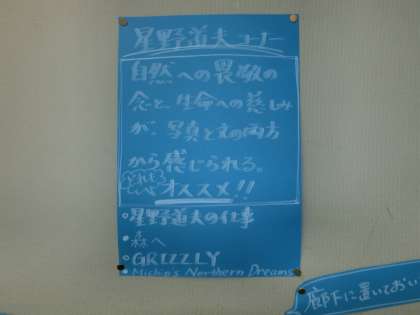 星野道夫コーナー
自然への畏敬の
念と、生命への慈しみ
が、写真と文の両方
から感じられる。
どれもとっても
オススメ!!
・星野道夫の仕事
・森へ
・GRIZZLY
・Michio's Northern Dreams
廊下に置いておい